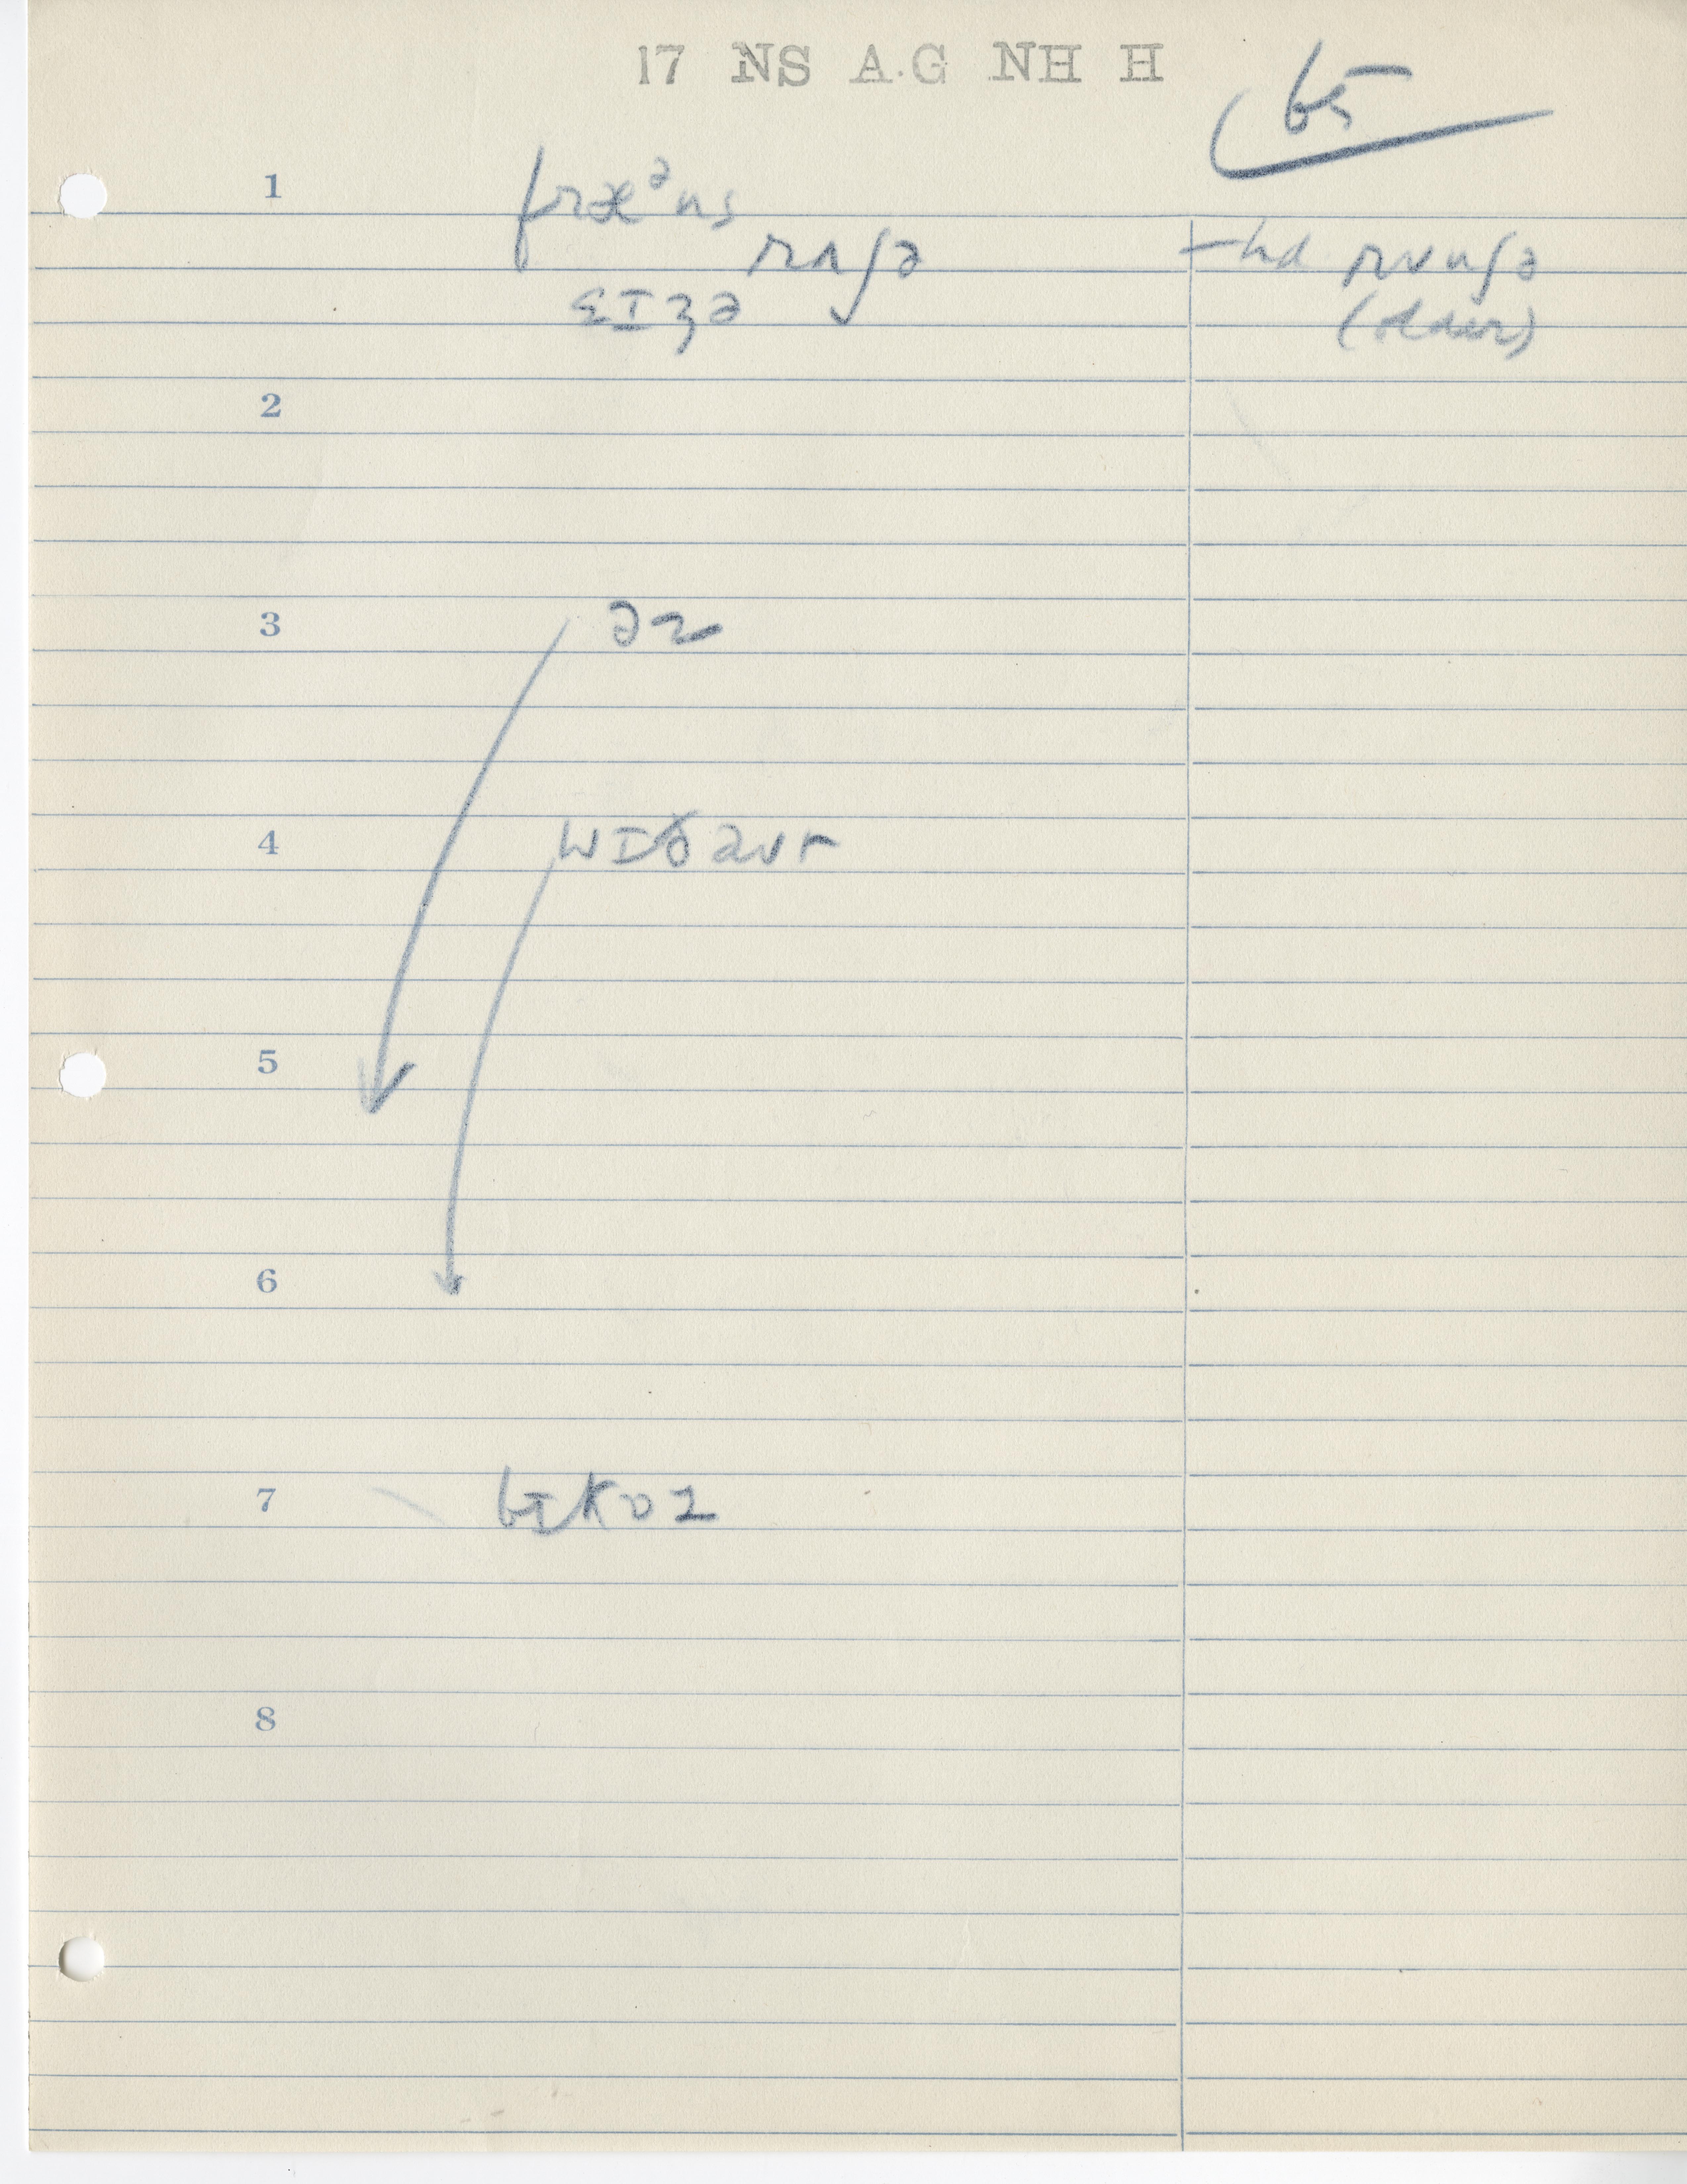 17 NS A.G NH H
65
1
fræᵊns
rʌʃə
– hd rʌʃə
ɛɪʒə
(older)
2
3
ər
4
wɪðaut
5
6
7
bɪkɒz
8